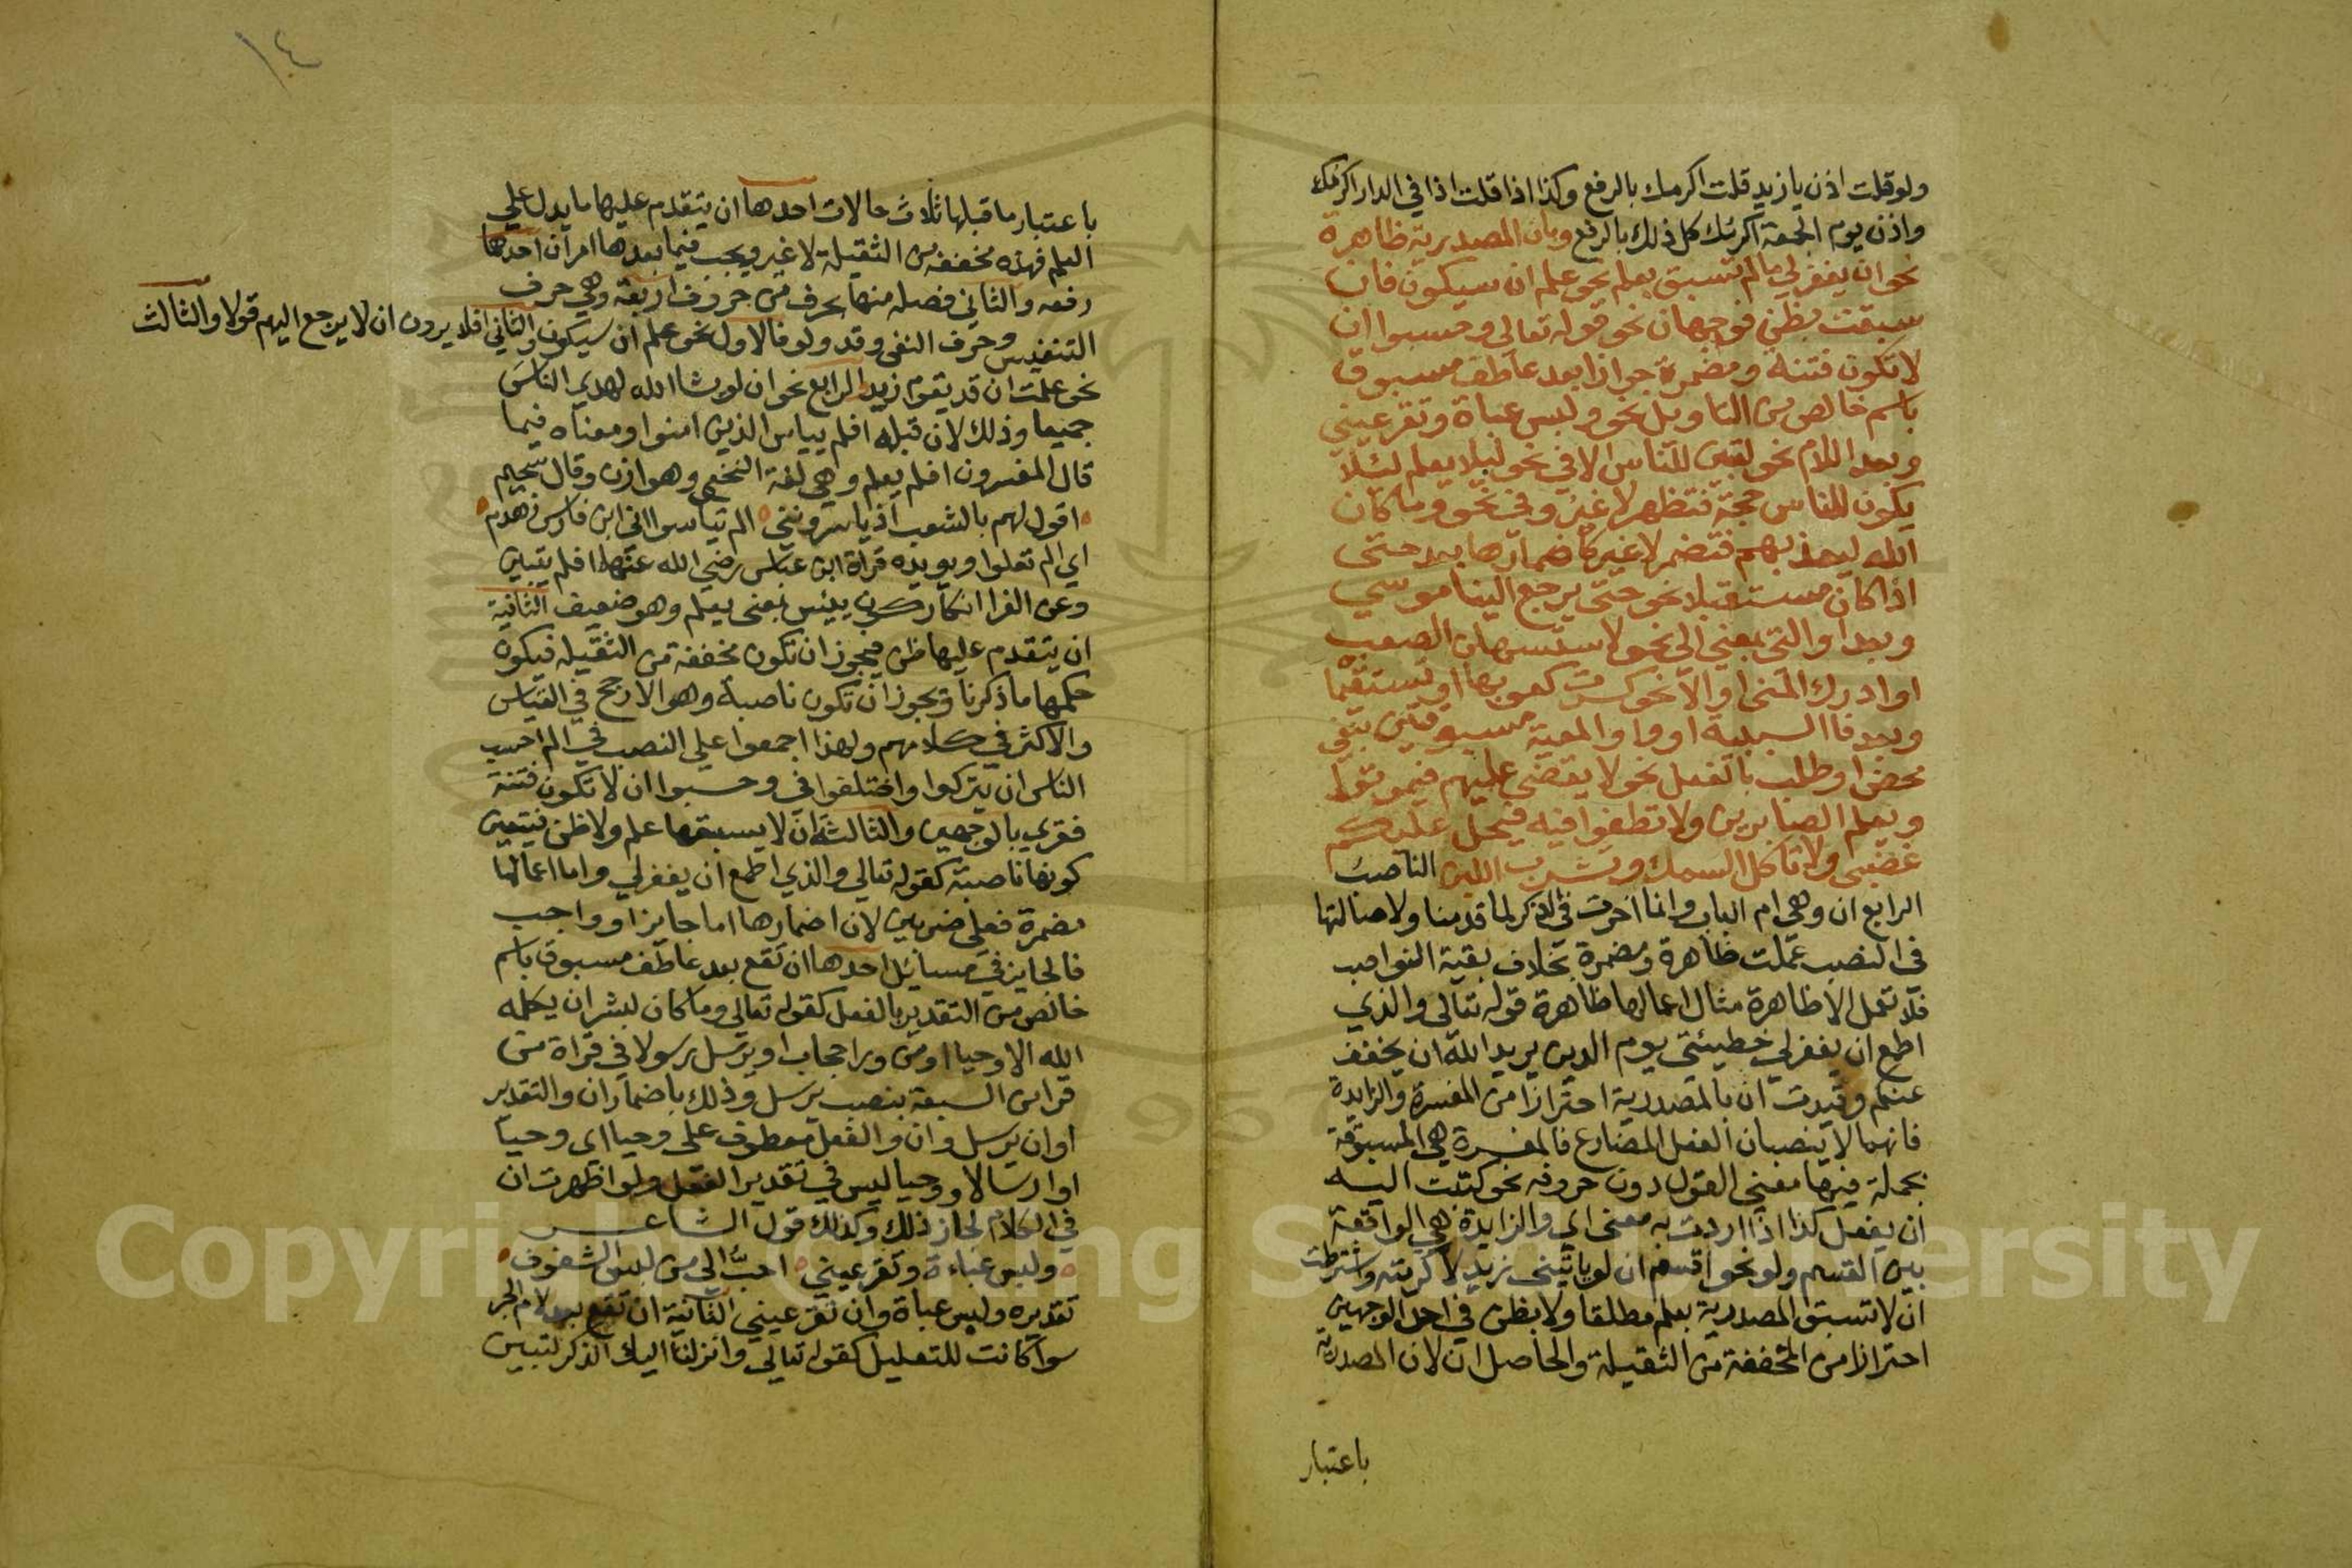 ١٤
ولو قلت اذن يا زيد قلت اكرمك بالرفع وكذا اذا قلت اذا في الدار اكرمك
واذن يوم الجمعة اكرمك كل ذلك بالرفع وبان المصدرية ظاهرة
نحو ان يغفر لي ما لم تسبق بعلم نحو علم ان سيكون فان
سبقت بظن فوجهان نحو قوله تعالى وحسبوا ان
لا تكون فتنة ومضمرة جوازا بعد عاطف مسبوق
باسم خالص من التاويل نحو ولبس عباة وتقر عيني
وبعد اللام نحو لتبين للناس الا في نحو ليلا يعلم لئلا
يكون للناس حجة فتظهر لا غير وفي نحو وما كان
الله ليعذبهم فتضمر لا غير كاضمارها بعد حتى
اذا كان مستقبلا نحو حتى يرجع الينا موسي
وبعد او التي بمعنى الى نحو لاستسهلن الصعب
او ادرك المنى او الا نحو كسرت كعوبها او تستقيما
وبعد فا السببية او واو المعية مسبوقتين بنفي
محض او طلب بالفعل نحو لا يقضى عليهم فيموتوا
ويعلم الصابرين ولا تطغوا فيه فيحل عليكم
غضبي ولا تاكل السمك وتشرب اللبن الناصب
الرابع ان وهي ام الباب وانما اخرت في الذكر لما قدمنا ولاصالتها
في النصب عملت ظاهرة ومضمرة بخلاف بقية النواصب
فلا تعمل الا ظاهرة مثال اعمالها ظاهرة قوله تعالى والذي
اطمع ان يغفر لي خطيئتي يوم الدين يريد الله ان يخفف
عنكم وقيدت ان بالمصدرية احترازا من المفسرة والزايدة
فانهما لا ينصبان الفعل المضارع فالمفسرة هي المسبوقة
بجملة فيها معنى القول دون حروفه نحو كتبت اليه
ان يفعل كذا اذا اردت به معنى اي والزايدة هي الواقعة
بين القسم ولو نحو اقسم ان لو ياتيني زيد لاكرمته واشترطت
ان لا تسبق المصدرية بعلم مطلقا ولا بظن في احد الوجهين
احترازا من المخففة من الثقيلة والحاصل ان لان المصدرية
باعتبار
باعتبار ما قبلها ثلاث حالات احدها ان يتقدم عليها ما يدل علي
العلم فهذه مخففة من الثقيلة لا غير ويجب فيما بعدها امران احدها
رفعه والثاني فصله منها بحرف من حروف اربعة وهي حرف
التنفيس وحرف النفي وقد ولو فالاول نحو علم ان سيكون والثاني افلا يرون ان لا يرجع اليهم قولا والثالث
نحو علمت ان قد يقوم زيد الرابع نحو ان لو يشا الله لهدي الناس
جميعا وذلك لان قبله افلم ييياس الذين امنوا ومعناه فيما
قال المفسرون افلم يعلم وهي لغة النخع وهوازن وقال سحيم
اقول لهم بالشعب اذ ياسرونني الم تياسوا اني ابن فارس زهدم
اي الم تعلوا ويويده قراة ابن عباس رضي الله عنهما افلم يتبين
وعن الفرا انكار كون ييئس بمعنى يعلم وهو ضعيف الثانية
ان يتقدم عليها ظن فيجوز ان تكون مخففة من الثقيله فيكون
حكمها ما ذكرنا ويجوز ان تكون ناصبة وهو الارجح في القياس
والاكثر في كلامهم ولهذا اجمعوا علي النصب في الم احسب
الناس ان يتركوا واختلفوا في وحسبوا ان لا تكون فتنة
فقري بالوجهين والثالثة ان لا يسبقها علم ولا ظن فيتعين
كونها ناصبة كقوله تعالي والذي اطمع ان يغفر لي واما اعمالها
مضمرة فعلي ضربين لان اضمارها اما جايز او واجب
فالجايز في مسائل احدها ان تقع بعد عاطف مسبوق باسم
خالص من التقدير بالفعل كقوله تعالي وما كان لبشر ان يكلمه
الله الا وحيا او من ورا حجاب او يرسل رسولا في قراة من
قرا من السبعة بنصب يرسل وذلك باضمار ان والتقدير
او ان يرسل وان والفعل معطوف علي وحيا اي وحيا
او ارسالا ووحيا ليس في تقدير الفعل ولو اظهرت ان
في الكلام لجاز ذلك وكذلك قول الشاعر
ولبس عباءة وتقر عيني احب الي من لبس الشفوف
تقديره ولبس عباة وان تقر عيني الثانية ان تقع بعد لام الجر
سوا كانت للتعليل كقوله تعالي وانزلنا اليك الذكر لتبين
Copyright © King Saud University
1957